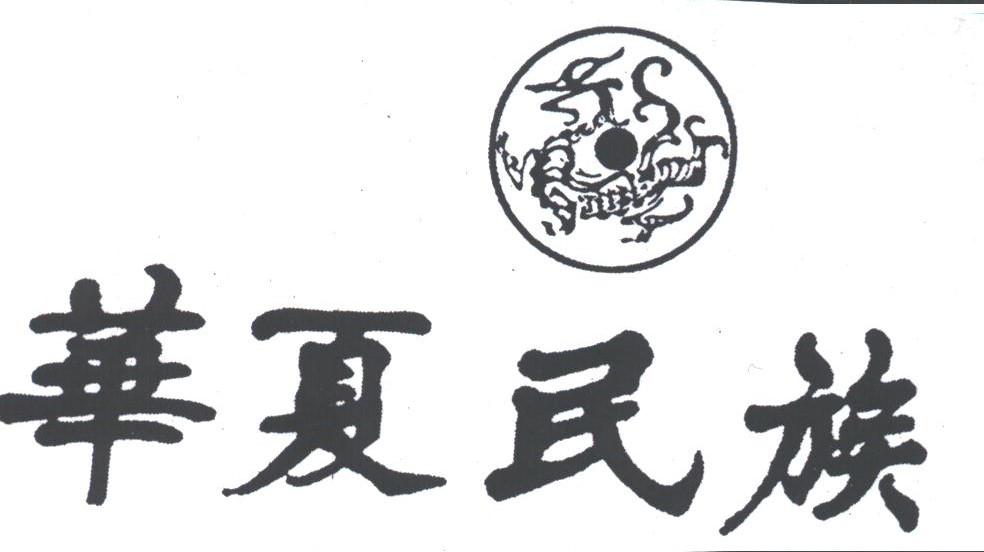 華夏民族